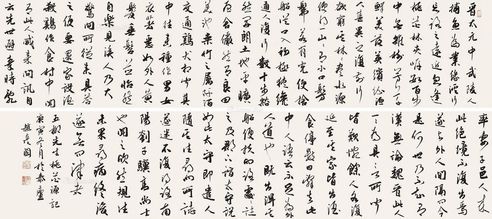 晋太元中武陵人
捕魚為業緣溪行
忘路之遠近忽逢
桃花林夾岸數百步
中無雜樹芳草
鮮美落英繽紛漁
人甚異之復前行
欲窮其林林盡水源
便得一山山有小口髣
髴若有光便舍
船從口入初極狹纔
通人復行數十步豁
然開朗土地平曠
屋舍儼然有良田
美池桑竹之屬阡陌
交通雞犬相聞其
中往來種作男女
衣著悉如外人黃
髮垂髫並怡然
自樂見漁人乃大
驚問所從來具答
之便要還家設酒
殺雞作食村中聞
有此人咸來問訊自
云先世避秦時亂
率妻子邑人來
此絕境不復出焉
遂與外人間隔問今
是何世乃不知有
漢無論魏晉此人
一一為具言所聞
皆歎惋餘人各復
延至其家皆出酒
食停數日辭去此
中人語云不足為外
人道也既出得其
船便扶向路處處誌
之及郡下詣太守說
如此太守即遣人
隨其往尋向所誌
遂迷不復得路南
陽劉子驥高尚士
也聞之欣然規往
未果尋病終後
遂無問津者
五柳先生桃花源記